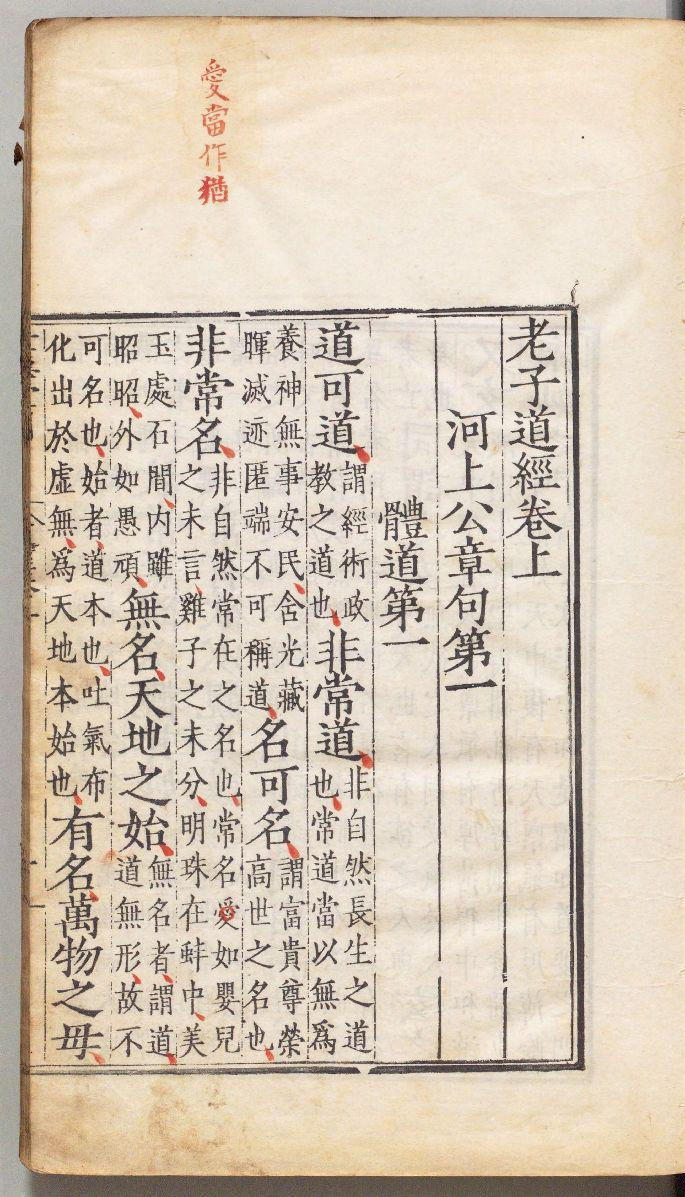 愛當作猶
老子道經卷上
河上公章句第一
體道第一
道可道謂經術政教之道也非常道非自然長生之道也常道當以無爲
養神無事安民含光藏暉滅迹匿端不可稱道名可名謂富貴尊榮高世之名也
非常名非自然常在之名也常名愛如嬰兒之未言雞子之未分明珠在蚌中美
玉處石間内雖昭昭外如愚頑無名天地之始無名者謂道道無形故不
可名也始者道本也吐氣布化出於虛無爲天地本始也有名萬物之母